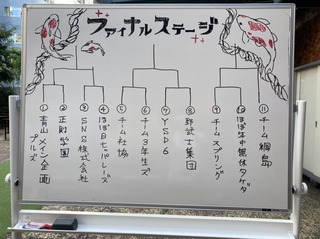 ファイナルステージ
① 青山メイン企画
プルズ
② 正則学園
③ SNS株式会社
④ ほぼ日セッパレーズ
⑤ チーム社協
⑥ チーム3年生ズ
⑦ YSD6
⑧ 野武士集団
⑨ チームスプリング
⑩ ほぼ年中無休タゲダ
⑪ チーム綱島